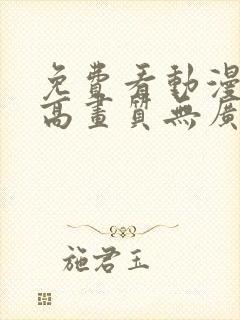 免費看動漫
高畫質無廣
施君玉